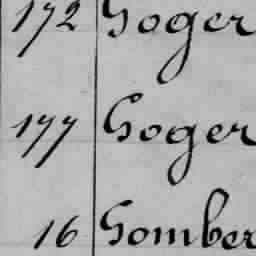 172 Goger
177 Goger
16 Gomber